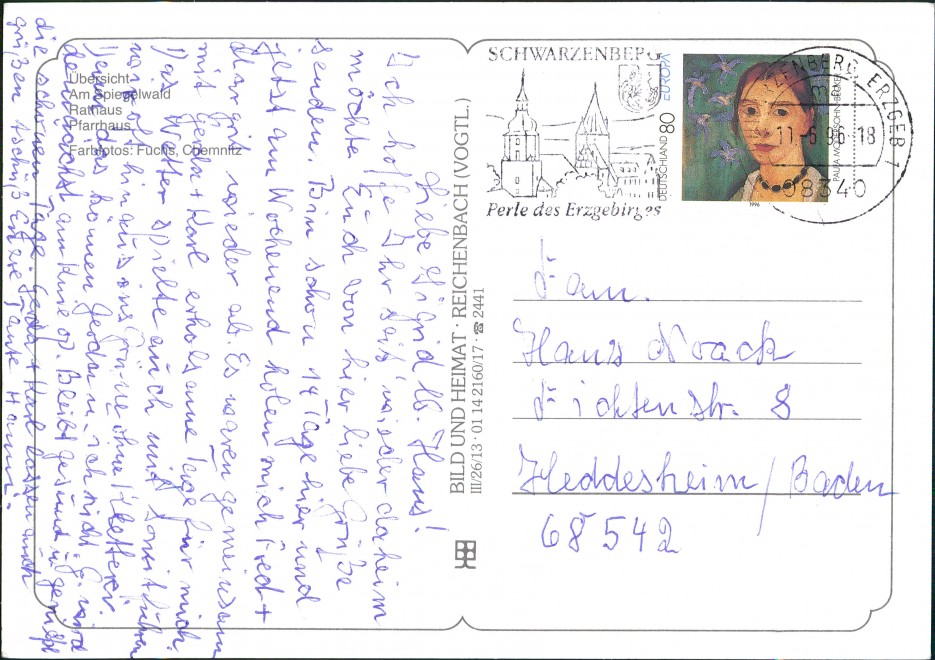 Übersicht
Am Spiegelwald
Rathaus
Pfarrhaus
Farbfotos: Fuchs, Chemnitz
Liebe Sigrid lb. Hans!
Ich hoffe Ihr seid wieder daheim
möchte Euch von hier liebe Grüße
senden. Bin schon 14 Tage hier und
jetzt am Wochenend holen mich Fred +
wieder ab. Es waren gemeinsam
mit Gerda + Karl erholsame Tage für mich.
Das Wetter spielte auch mit somit fuhren
wir oft hinaus ins Grüne ohne
können Gerda u. ich nicht. G. wird
demnächst am Knie op. Bleibt gesund u. genießt
die schönen Tage. Gerda + Karl lassen auch
grüßen tschüß Eure Tante Hanni.
BILD UND HEIMAT · REICHENBACH (VOGTL.)
III/26/13 · 01 14 2160/17 · ☎ 2441
SCHWARZENBERG
Perle des Erzgebirges
DEUTSCHLAND 80
EUROPA
PAULA MODERSOHN-BECKER
1996
ERZGEB 1
11-6.96-18
08340
Fam.
Hans Noack
Fichtenstr. 8
Heddesheim / Baden
68542